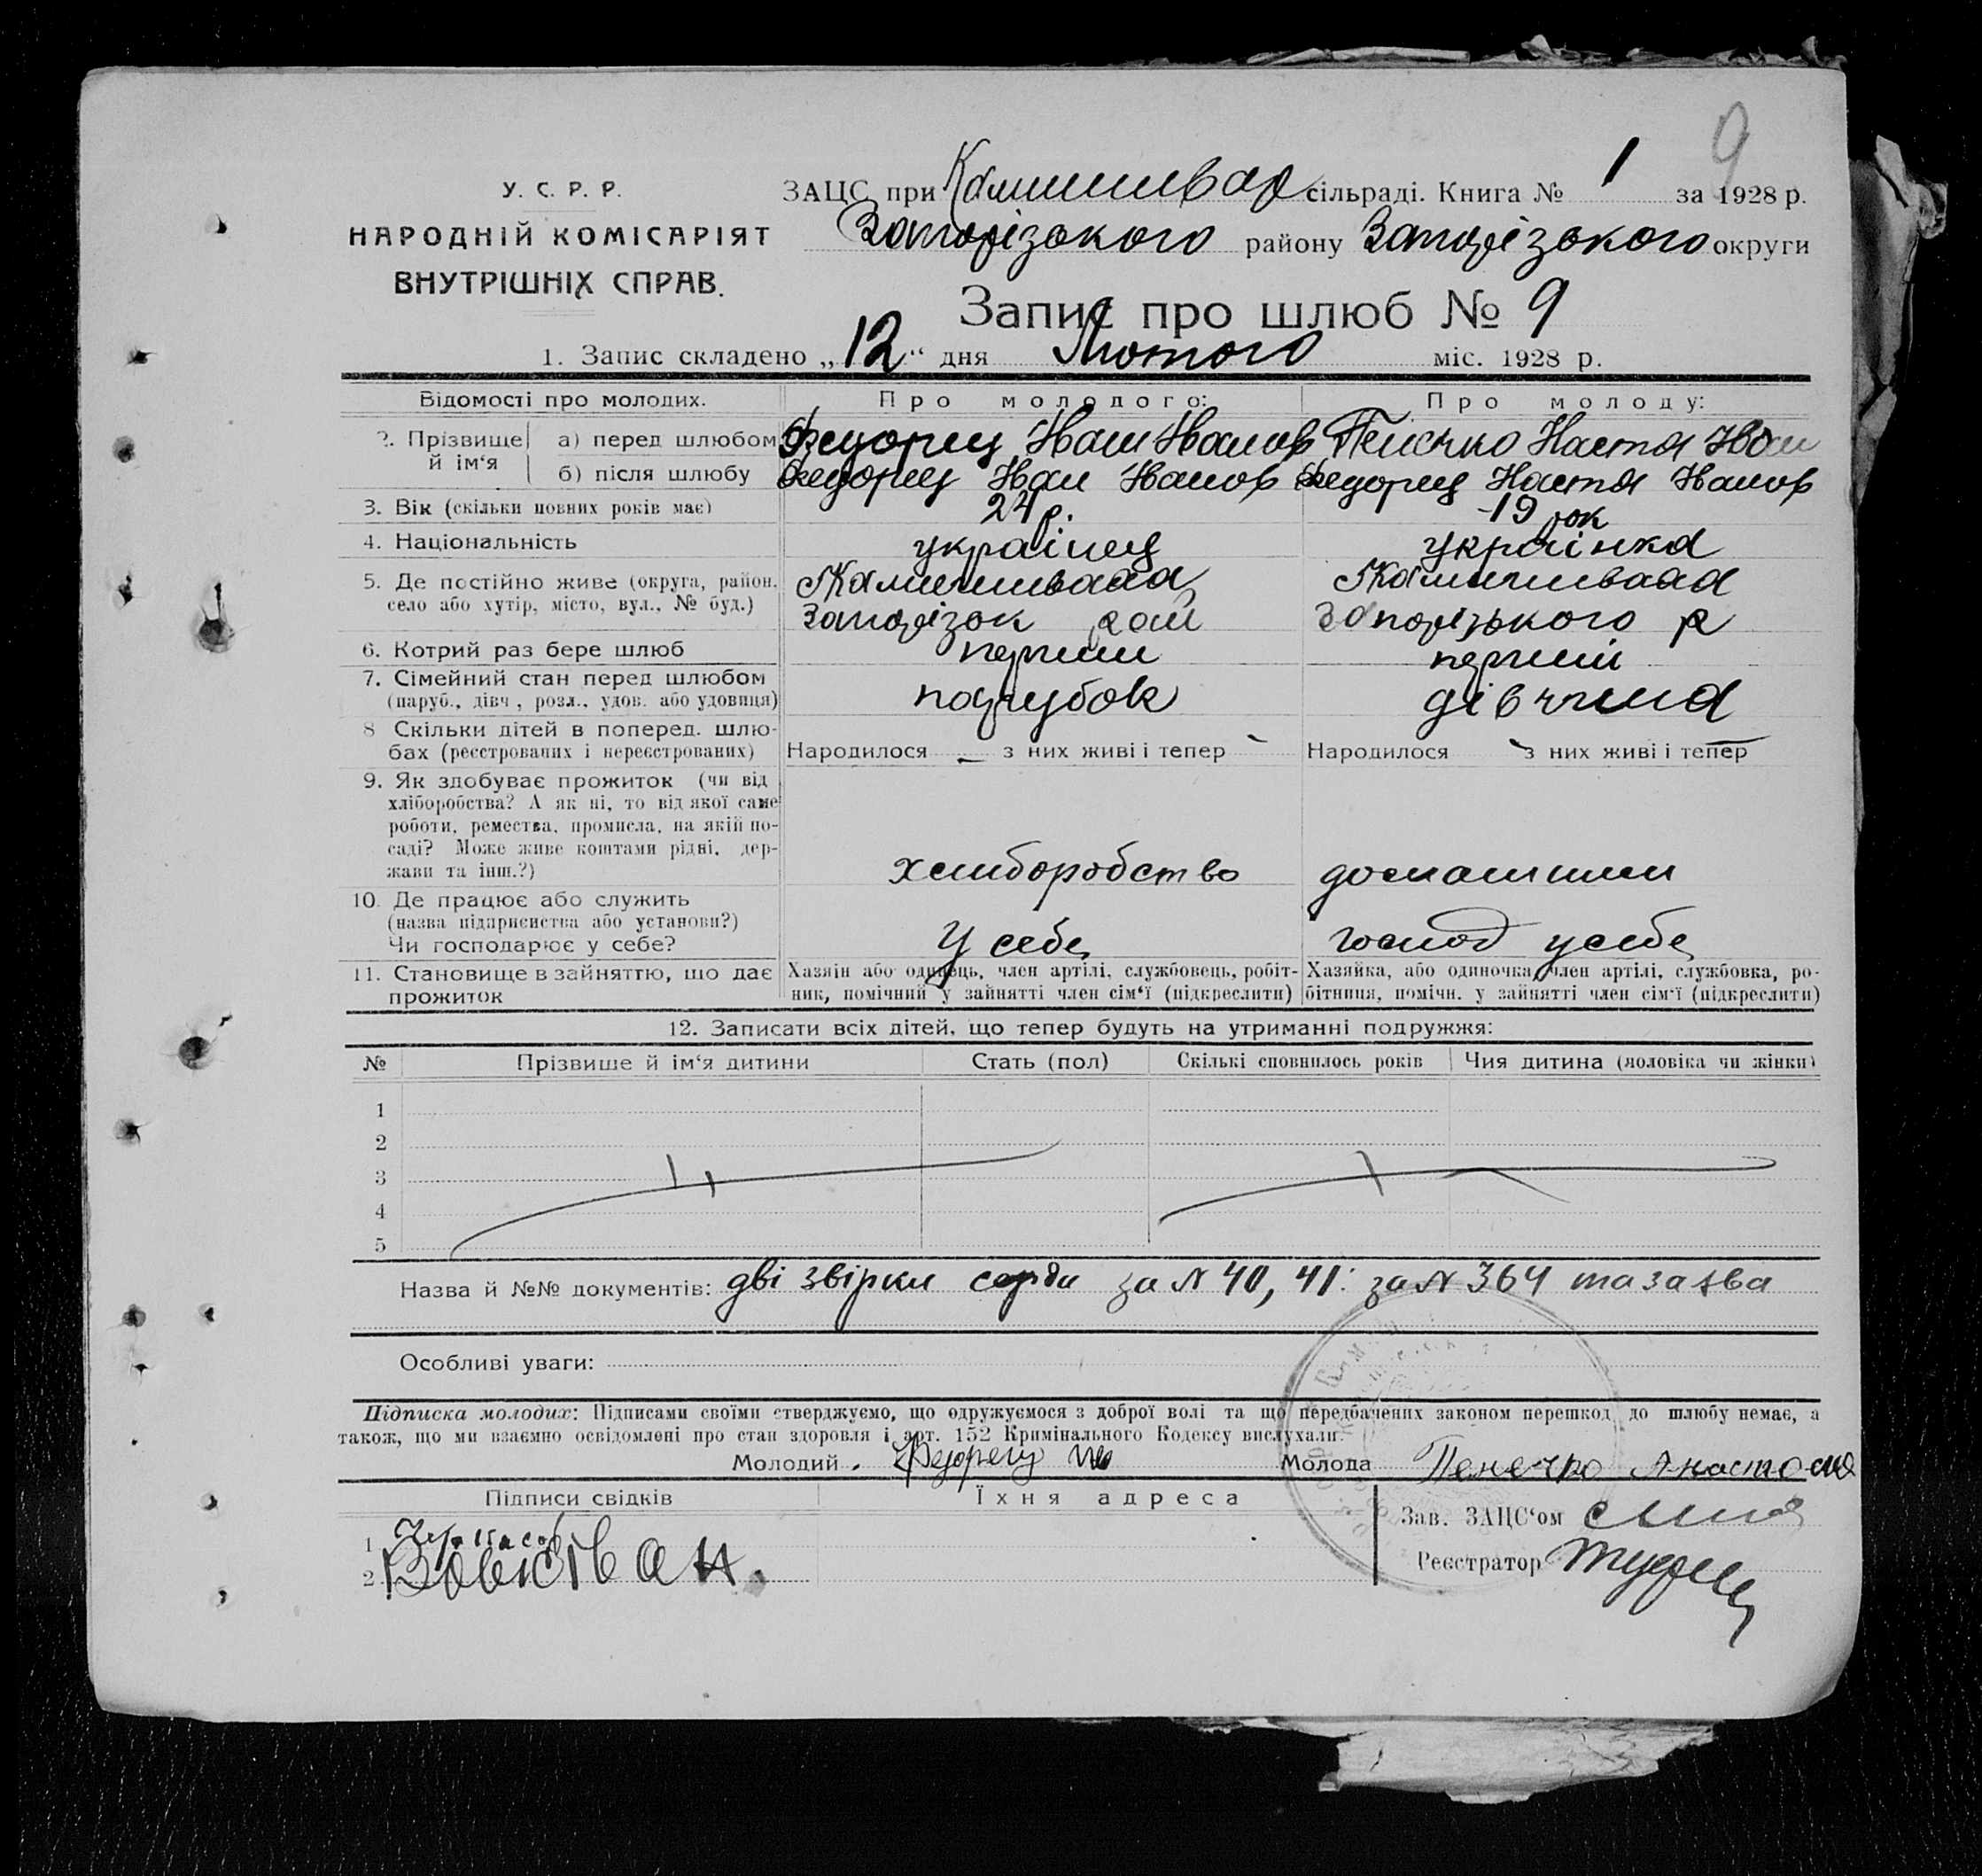 9
У. С. Р. Р.
НАРОДНІЙ КОМІСАРІЯТ
ВНУТРІШНІХ СПРАВ.
ЗАЦС при сільраді. Книга № 1 за 1928 р.
Запорізького району Запорізького округи
Запис про шлюб № 9
1. Запис складено „12“ дня Лютого міс. 1928 р.
Відомості про молодих. Про молодого: Про молоду:
2. Прізвище й ім‘я
а) перед шлюбом Федорец Иван Иванов Настя Иван
б) після шлюбу Федорец Иван Иванов Федорец Настя Иванов
3. Вік (скільки повних років має) 24 р. 19 рок
4. Національність українец українка
5. Де постійно живе (округа, район,
село або хутір, місто, вул., № буд.)
Запорізок рай Запорізького р
6. Котрий раз бере шлюб перший перший
7. Сімейний стан перед шлюбом
(паруб., дівч., розл., удов. або удовиця) парубок дівчина
8 Скільки дітей в поперед. шлю-
бах (реєстрованих і нереєстрованих) Народилося — з них живі і тепер - Народилося - з них живі і тепер —
9. Як здобуває прожиток (чи від
хліборобства? А як ні, то від якої саме
роботи, ремества, промисла, на якій по-
саді? Може живе коштами рідні, дер-
жави та інш.?) хлиборобство домашним
10. Де працює або служить
(назва підприємства або установи?)
Чи господарює у себе? У себе господ у себе
11. Становище в зайняттю, що дає
прожиток
Хазяін або одинець, член артілі, службовець, робіт-
ник, помічний у зайнятті член сім‘ї (підкреслити)
Хазяйка, або одиночка, член артілі, службовка, ро-
бітниця, помічн. у зайнятті член сім‘ї (підкреслити)
12. Записати всіх дітей, що тепер будуть на утриманні подружжя:
№ Прізвише й ім‘я дитини Стать (пол) Скількі сповнилось років Чия дитина (чоловіка чи жінки)
1
2
3
4
5
Назва й №№ документів: дві звірки за N 40, 41: за N 364 та заява
Особливі уваги:
Підписка молодих: Підписами своїми стверджуємо, що одружуємося з доброї волі та що передбачених законом перешкод до шлюбу немає, а
також, що ми взаємно освідомлені про стан здоровля і арт. 152 Кримінального Кодексу вислухали.
Молодий. Федорец Молода
Підписи свідків Їхня адреса
1
2
Зав. ЗАЦС‘ом
Реєстратор